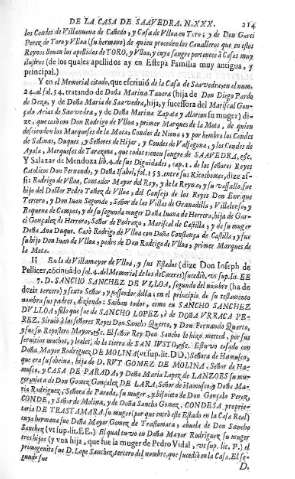 DE LA CASA DE SAAVEDRA. N.XXX. 214
los Condes de Villanueva de Cañedo, y Casa de Ulloa en Toro; y de Don Garci
Perez de Toro y Ulloa (su hermano) de quien proceden los Cavalleros que en estos
Reynos tienen los apellidos de Toro, y Ulloa, y cuya sangre pertenece à Casas muy
ilustres (de los quales apellidos ay en Estepa Familia muy antigua, y
principal.)
Y en el Memorial citado, que escriviò de la Casa de Saavedra en el num.
24. al fol. 54. tratando de Doña Marina Tavera (hija de Don Diego Pardo
de Deza, y de Doña Maria de Saavedra, hija, y sucessora del Mariscal Gon-
çalo Arias de Saavedra, y de Doña su muger) di-
ze, que casò con Don Rodrigo de Ulloa, primer Marques de la Mota, de quien
descienden los Marqueses de la Mota, Condes de y por hembra los Condes
de Salinas, Duques, y Señores de Hijar, y Condes de y los Condes de
Ayala, Marqueses de Tarazona, que todos tienen sangre de SAAVEDRA, etc.
Y Salazar de Mendoza lib. 4. de sus Dignidades, cap. 1. de los Señores Reyes
Catolicos Don Fernando, y Doña Isabel, fol. entre sus Ricoshomes, dize as-
si: Rodrigo de Ulloa, Contador Mayor del Rey, y de la Reyna, y su vassallo, fue
hijo del Doctor Pedro Yañez de Ulloa, del Consejo de los Reyes Don Enrique
Tercero, y Don Juan Segundo, Señor de las Villas de Granadilla, y
Requena de Campos, y de su segunda muger Doña Juana de Herrera, hija de Gar-
ci Gonçalez de Herrera, Señor de Pedraza, Mariscal de Castilla, y de su muger
Doña Ana Duque. Casò Rodrigo de Ulloa con Doña de Castilla, y fue
su hijo Don Juan de Ulloa, padre de Don Rodrigo de Ulloa, primer Marques de
la Mota.
II En la de Villamayor de Ulloa, y sus Estados (dize Don Joseph de
Pellicer, en ) sucediò, ut sup. lit. EE
7. D. SANCHO SANCHEZ DE ULLOA, segundo del nombre (ha
de dezir tercero) y sexto Señor, y possehedor della: en el principio de su testamento
nombra sus padres, diziendo: Sabian todos, como yo SANCHO SANCHEZ
DE ULLOA, fijo que soe de SANCHO LOPEZ, è de Doña URRACA PE-
REZ. Sirviò à los señores Reyes Don Sancho Quarto, y Don Fernando Quarto,
y fue su Repostero Mayor, etc. El señor Rey Don Sancho le hizo merced, por sus
servicios muchos, y leales, de la tierra de SAN JUSTO, etc. Estuvo casado con
Doña Mayor Rodriguez DE MOLINA (ut sup. lit. DD.) Señora de
que era su sobrina, hija de D. RUY GOMEZ DE MOLINA, Señor de
y CASA DE PARADA, y Doña Maria Lopez de LANZOES su mu-
ger, nieta de Don Gomez Gonçalez DE LARA, Señor de y Doña Ma-
ria Rodriguez, Señora de Parada, su muger, y de Don Gonçalo Perez,
CONDE, y Señor de Molina, y de Doña Sancha Gomez, CONDESA proprie-
taria DE TRASTAMARA su muger (por que entrò este Estado en la Casa Real)
cuya hermana fue Doña Mayor Gomez de Trastamara, abuela de Don Sancho
Sanchez (ut sup. lit. EE.) El qual tuvo en Doña Mayor Rodriguez su muger
tres hijos (y vna hija, que fue la muger de Pedro Vidal, ut sup. lit. F.) el
primogenito fue D. Lope Sanchez, tercero del nombre, que sucediò en la Casa. El se-
gundo fue
D.